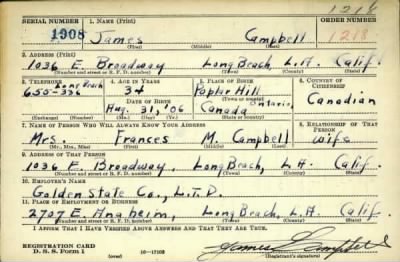 1218
SERIAL NUMBER 1. NAME (Print) ORDER NUMBER
1908 James Campbell 1218
(First) (Middle) (Last)
2. ADDRESS (Print)
1036 E. Broadway Long Beach, L.A. Calif.
(Number and street or R. F. D. number) (Town) (County) (State)
3. TELEPHONE 4. AGE IN YEARS 5. PLACE OF BIRTH 6. COUNTRY OF CITIZENSHIP
Long Beach 34 Poplar Hill
655-336 DATE OF BIRTH (Town or county) Canadian
Aug. 31, '06 Canada Ontario
(Mo.) (Day) (Yr.) (State or country)
7. NAME OF PERSON WHO WILL ALWAYS KNOW YOUR ADDRESS 8. RELATIONSHIP OF THAT PERSON
Mrs. Frances M. Campbell wife
(Mr., Mrs., Miss) (First) (Middle) (Last)
9. ADDRESS OF THAT PERSON
1036 E. Broadway, Long Beach, L.A. Calif.
(Number and street or R. F. D. number) (Town) (County) (State)
10. EMPLOYER'S NAME
Golden State Co., L.T.D.
11. PLACE OF EMPLOYMENT OR BUSINESS
2707 E. Anaheim, Long Beach, L.A. Calif.
(Number and street or R. F. D. number) (Town) (County) (State)
I AFFIRM THAT I HAVE VERIFIED ABOVE ANSWERS AND THAT THEY ARE TRUE.
REGISTRATION CARD
D. S. S. Form 1 (over) 16—17105 James Campbell